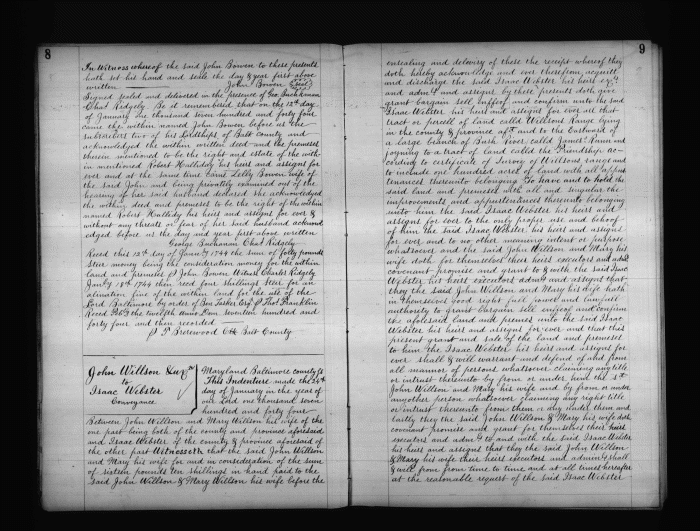 8
In Witness whereof the said John Bowen to these presents
hath set his hand and seale the day & year first above
written John Bowen Seal
Signed sealed and delivered in the presence of Geo Buchanan
Chas Ridgely Be it remembered that on the 12th day
of January one thousand seven hundred and forty four
came the within named John Bowen before us the
subscribers two of his Lordships of Balt county and
acknowledged the within written deed and the premises
therein mentioned to be the right and estate of the with
in mentioned Robert Halliday his heirs and assigns for
ever and at the same time came Lelly Bowen wife of
the said John and being privately examined out of the
hearing of her said husband declared she acknowledged
the within deed and premises to be the right of the within
named Robert Halliday his heirs and assigns for ever &
without any threats or fear of her said husband acknowl
edged before us the day and year first above written
George Buchanan Chas Ridgely
Reced this 12th day of Jany 1744 the sum of forty pounds
ster money being the consideration money for the within
land and premises John Bowen Witness Charles Ridgely
Jany 18th 1744 then reced four shillings ster for an
alination fine of the within land for the use of the
Lord Baltimore by order of Ben Tasker Esqr Thos Franklin
Reced Feb the twelfth anno Dom seventeen hundred and
forty four and then recorded
T Brerewood Clk Balt County
John Willson & ux
to
Isaac Webster
Conveyance
Maryland Baltimore county ss
This Indenture made the 24th
day of January in the year of
our Lord one thousand seven
hundred and forty four
Between John Willson and Mary Willson his wife of the
one part being both of the county and province aforesaid
and Isaac Webster of the county & province aforesaid of
the other part Witnesseth that the said John Willson
and Mary his wife for and in consideration of the sum
of sixteen pounds ten shillings in hand paid to the
said John Willson & Mary Willson his wife before the
9
ensealing and delivery of these the receipt whereof they
doth hereby acknowledge and ever therefrom acquitt
and discharge the said Isaac Webster his heirs
and admrs and assigns by these presents doth give
grant bargain sell enfeof and confirm unto the said
Isaac Webster his heirs and assigns for ever all that
tract or parcell of land called Willsons Range lying
in the county & province afsd and to the Eastward of
a large branch of Bush River called James Runn and
joyning to a tract of land called the Friendship ac-
cording to certificate of Survey of Willsons range and
to include one hundred acres of land with all appur
tenances thereunto belonging To have and to hold the
said land and premises with all and singular the
improvements and appurtenances thereunto belonging
unto him the said Isaac Webster his heirs and
assigns for ever to the only proper use and behoof
of him the said Isaac Webster his heirs and assigns
for ever and to no other meaning intent or purpose
whatsoever and the said John Willson and Mary his
wife doth for themselves their heirs executors and admrs
covenant promise and grant to & with the said Isaac
Webster his heirs executors admrs and assigns that
they the said John Willson and Mary his wife hath
in themselves good right full power and lawfull
authority to grant bargain sell enfeof and confirm
the aforesaid land and premises unto the said Isaac
Webster his heirs and assigns for ever and that this
present grant and sale of the land and premises
to him the Isaac Webster his heirs and assigns for
ever shall & will warrant and defend of and from
all manner of persons whatsoever claiming any title
or intrust thereunto by from or under him the sd
John Willson and Mary his wife and by from or under
any other person whatsoever claiming any right title
or intrust thereunto from them or any under them and
lastly they the said John Willson & Mary his wife doth
covenant promise and grant for themselves their heirs
executors and admrs to and with the said Isaac Webster
his heirs and assigns that they the said John Willson
& Mary his wife their heirs executors and admrs shall
& will from from time to time and at all times hereafter
at the reasonable request of the said Isaac Webster